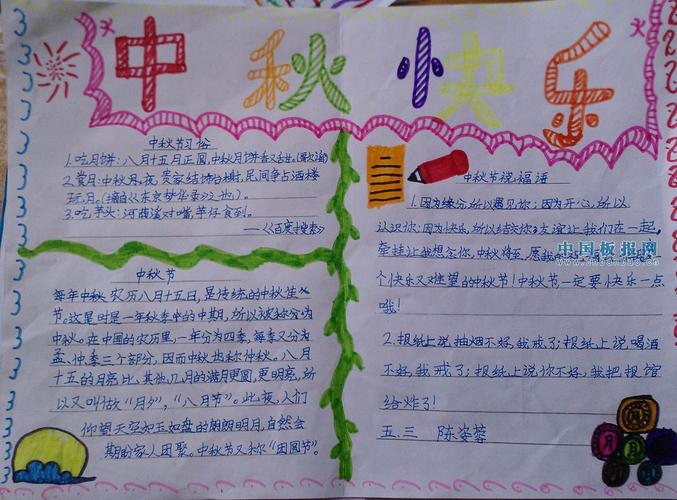 中秋快乐
中秋节习俗
1.吃月饼:八月十五月正圆,中秋月饼香又甜。(歌谣)
2.赏月:中秋月夜,贵家结饰台榭,民间争占酒楼
玩月。(摘自《东京梦华录》也)。
3.吃芋头:河
对嘴,芋仔食到。
——《百度搜索》
中秋节
每年中秋农历八月十五日,是传统的中秋佳
节。这是时是一年秋季中的中期,所以被称穷为
中秋。在中国的农历里,一年分为四季,每季又分为
孟、仲、季三个部分,因而中秋也称仲秋。八月
十五的月亮比其他几月的满月更圆,更明亮,所
以又叫做“月夕”,“八月节”。此夜,人们
仰望天空如玉如盘的朗朗明月,自然会
期盼家人团聚。中秋节又称“团圆节”。
中秋节祝福语
1.因为缘分,所以遇见你;因为开心,所以
认识你;因为快乐,所以结交你;友谊让我们在一起,
牵挂让我想念你,中秋将至,愿我
个快乐又难望的中秋节!中秋节一定要快乐一点
哦!
2.报纸上说抽烟不好,我戒了;报纸上说喝酒
不好,我戒了;报纸上说你不好,我把报馆
给炸了!
五.三 陈姿蓉
中国板报网
月